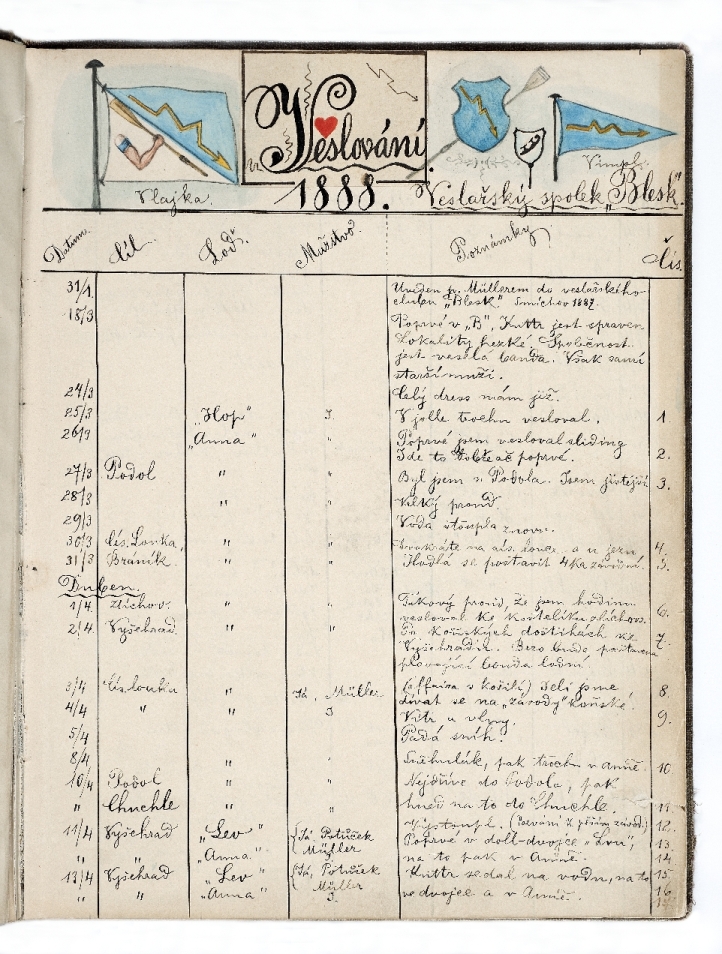 Veslování
1888.
Vlajka.
Vimpl.
Veslařský spolek „Blesk"
Datum
Cíl.
Loď.
Mužstvo
Poznámky
Čís.
31/1. Uveden p. Müllerem do veslařského
clubu „Blesk" Smíchov 1887.
18/3 Poprvé v „B", Kuttr jest spraven
Lokality hezké. Společnost
jest veselá banda. Však samí
starší muži.
24/3 Celý dress mám již.
25/3 „Hop" I. V jolle trochu vesloval. 1.
26/3 „Anna" " Poprvé jsem vesloval sliding
Jde to poprvé. 2.
27/3 Podol " " Byl jsem u Podola. Jsem jistější 3.
28/3 " " Velký proud.
29/3 Voda stoupla znovu.
30/3 Cís. Louka, " " Dvakráte na cís. louce a u jezu. 4.
31/3 Braník. " " Hodlá se postavit 4ka závodní. 5.
Duben.
1/4. Zlíchov. " " Takový proud, že jsem hodinu
vesloval ke kostelíku zlíchovs. 6.
2/4. Vyšehrad. " " Po koňských dostihách ke
Vyšehradu. Brzo bude postavena 7.
plovající bouda lodní.
3/4 Cís. louka " Já, Müller (offsina v košili) Jeli jsme 8.
dívat se na „závody" koňské.
4/4 " " I Vítr a vlny. 9.
5/4 Padá sníh.
8/4 " " trochu v Anně. 10.
10/4 Podol " " Nejdříve do Podola, pak
" Chuchle " " hned na to do Chuchle. 11.
11/4 Vyšehrad „Lev" {Já, Potůček 12.
Müller Poprvé v doll-dvojce „Lvu", 13.
" " „Anna" na to pak v Anně. 14.
13/4 Vyšehrad „Lev" {Já, Potůček Kuttr se dal na vodu, na to 15
Müller
" " „Anna" I. ve dvojce a v Anně. 16